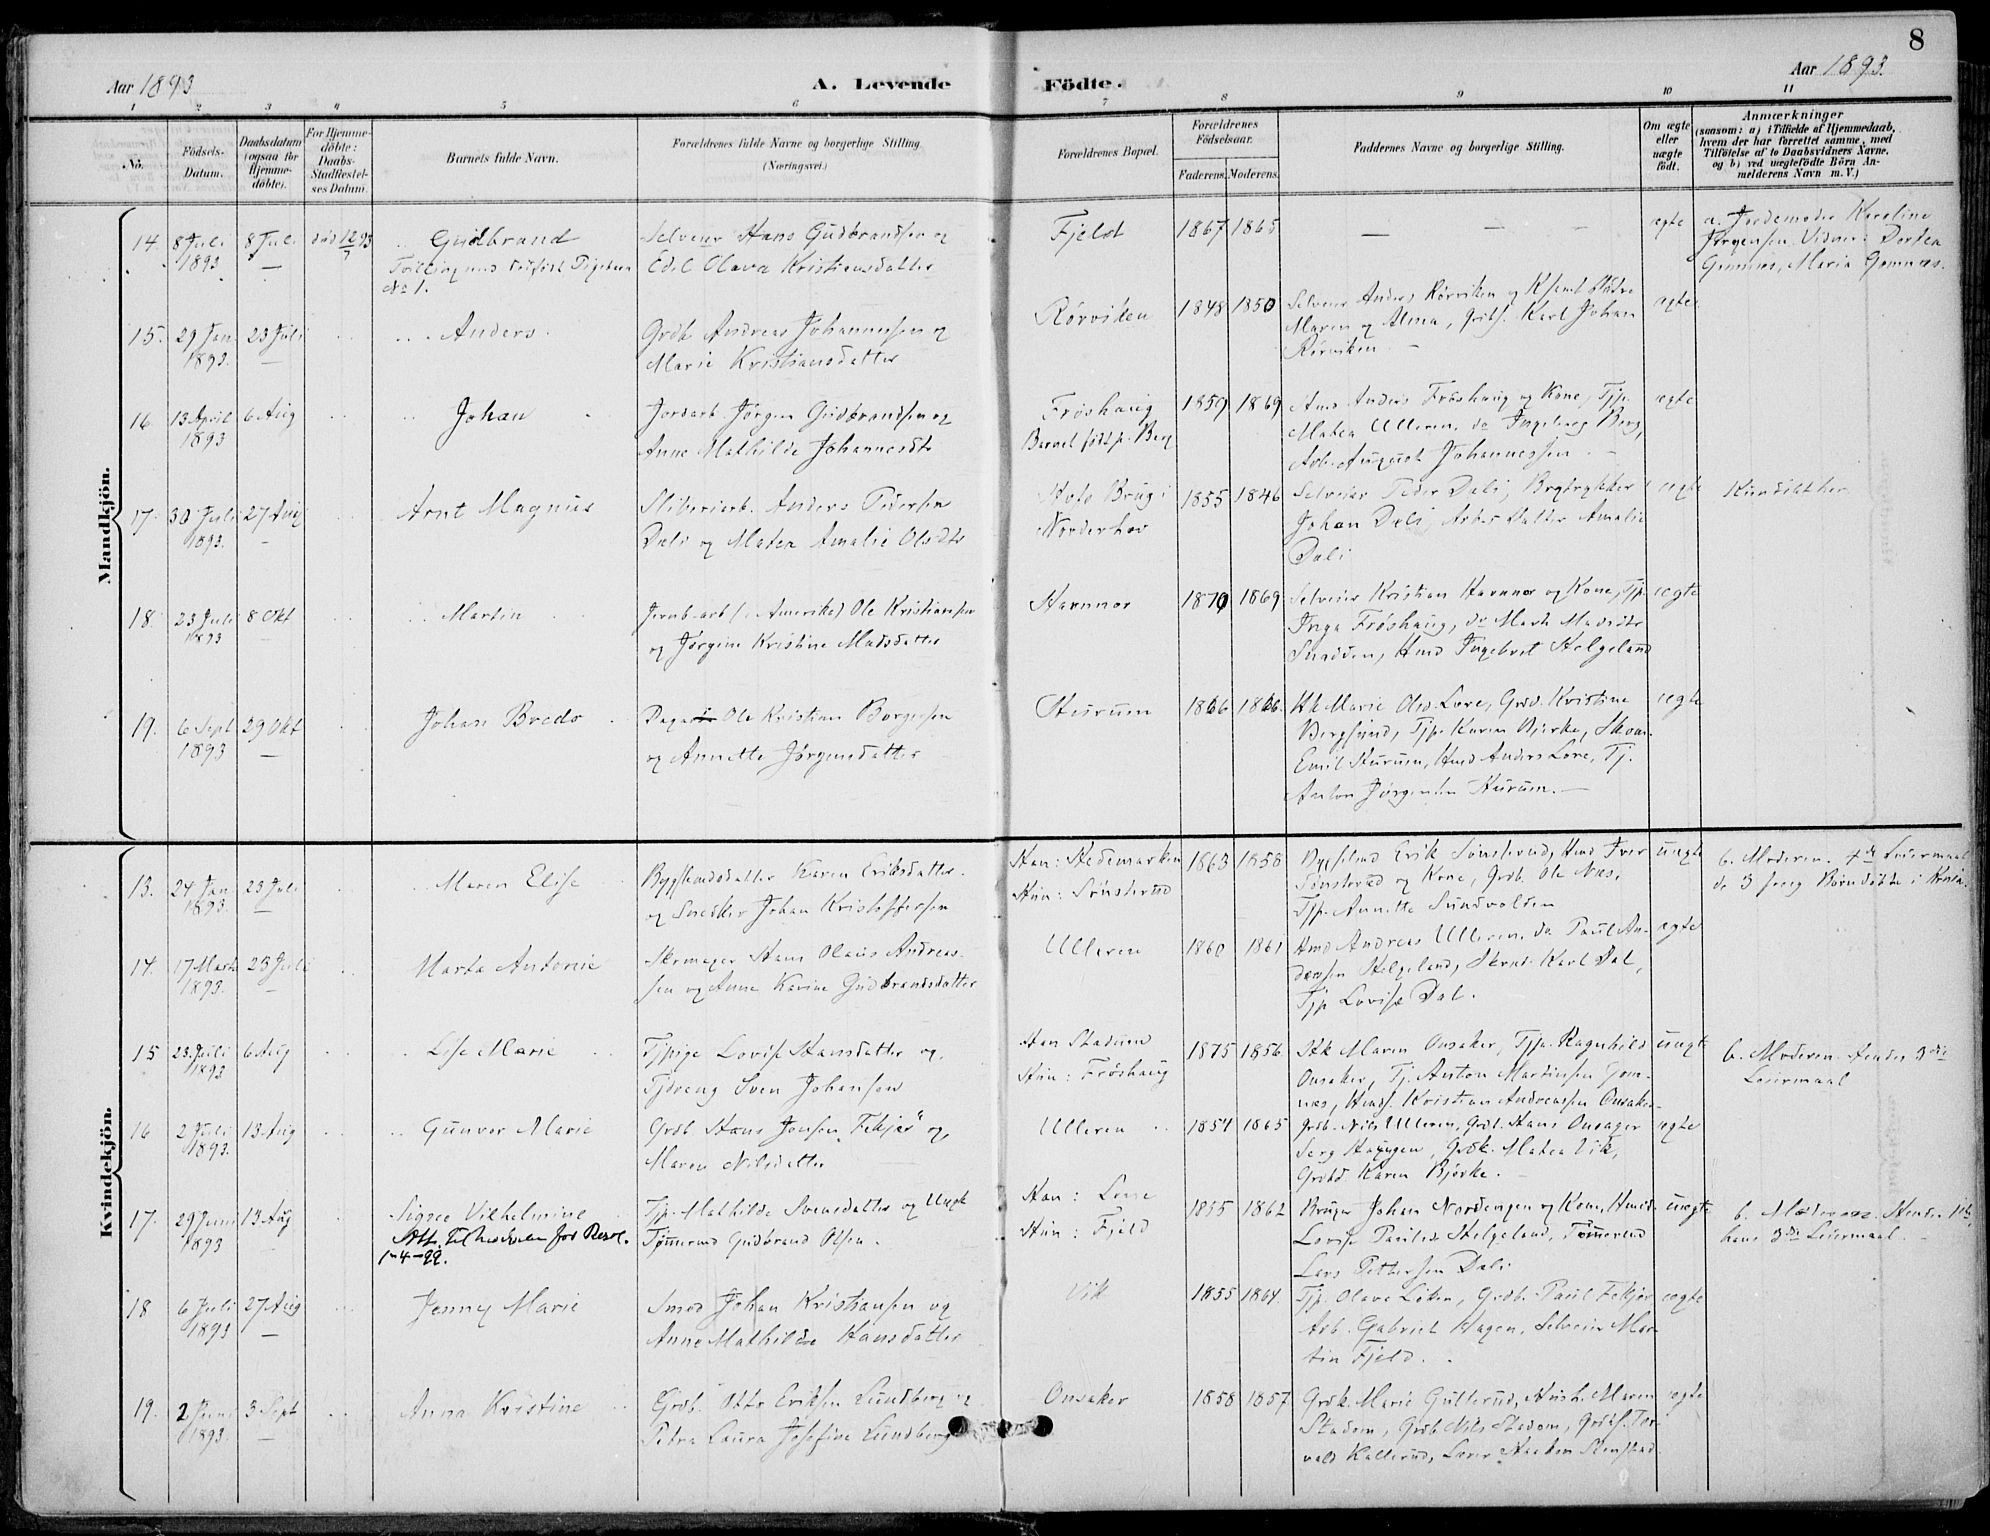 8
Aar 1893
A. Levende Födte.
Aar 1893.
1 2 3 4 5 6 7 8 9 10 11
No.
Födsels-Datum.
Daabsdatum (ogsaa for Hjemme-döbte).
For Hjemme-döbte: Daabs-Stadfæstel-ses Datum.
Barnets fulde Navn.
Forældrenes fulde Navne og borgerlige Stilling (Næringsvei.)
Forældrenes Bopæl.
Forældrenes Födselsaar.
Faderens. Moderens.
Faddernes Navne og borgerlige Stilling.
Om ægte eller uægte födt.
Anmærkninger
(saasom: a) i Tilfælde af Hjemmedaab, hvem der har forrettet samme, med Tilföielse af to Daabsvidners Navne, og b) ved uægtefödte Börn An-melderens Navn m. V.)
Mandkjön.
14. 8 Juli 1893 8 Juli død 12/7 93 Gudbrand
Tvilling med dødfødt Pigebarn No 1.
Selveier Hans Gudbrandsen og
Edel Olava Kristiansdatter
Fjeld 1867 1865 — — — ægte
a. Jordemoder Karoline
Jørgensen. Vidner: Dortea
Gomnæs, Maria Gomnæs.
15. 29 Jan. 1893. 23 Juli Anders
Grdb Andreas Johannessen og
Marie Kristiansdatter
Rørviken 1848 1850
Selveier Anders Rørviken og K samt Døtre
Maren og Alma, Grdbs. Karl Johan
Rørviken — ægte
16 13 April 1893 6 Aug Johan
Jordarb. Jørgen Gudbrandsen og
Anne Mathilde Johannesdtr
Frøshaug
Barnet født p. Berg
1859 1869
Arb. Anders Frøshaug og Kone, Tjp.
Matea Ulleren, do Ingeborg Berg,
Arb. August Johannessen. — ægte
17. 30 Juli 1893. 27 Aug Arnt Magnus
Sliberiarb. Anders Pedersen
Dæli og Matea Amalie Olsdtr
Hofs Brug i
Norderhov
1855 1846
Selveier Peder Dæli, Bogtrykker
Johan Dæli, Arbs Datter Amalie
Dæli
ægte
18. 23 Juli 1893 8 Okt Martin
Jernb.arb (i Amerika) Ole Kristiansen
og Jørgine Kristine Madsdatter
Hamnor 1870 1869
Selveier Kristian Hamnor og Kone, Tjp.
Inga Frøshaug, do Mart Madsdtr
Sundden, Hmd Ingebret Helgeland
ægte
19. 6 Sept 1893 29 Okt Johan Bredo
Ole Kristian Borgersen
og Annette Jørgensdatter
Hurum 1866 1866
Hk Marie Olsd. Løre, Grdd. Kristine
Bergsund, Tjp. Karen Bjerke, Skom.
Emil Hurum, Hmd Anders Løre, Tj.
Anton Jørgensen Hurum. —
ægte
Kvindekjön.
13. 24 Jan 1893. 23 Juli Maren Elise
Bygselmdsdatter Karen Eriksdatter
og Snedker Johan Kristoffersen
Han: Hedemarken
Hun: Sønsterud
1863 1858
Bygselmd Erik Sønsterud, Hmd Iver
Sønsterud og Kone, Grdb. Ole Næs,
Tjp. Annette Sundvolden
uægte
b. Moderen. 4de Leiermaal
14. 17 Marts 1893. 23 Juli Marta Antonie
Hans Olaus Andreas-
sen og Anne Karine Gudbrandsdatter
Ulleren 1860 1861
Hmd Andreas Ulleren, do Paul An-
dersen Helgeland, Karl Dal,
Tjp Lovise Dal.
ægte
15 23. Juli 1893 6 Aug Lise Marie
Tjpige Lovise Hansdatter og
Tjdreng Sven Johansen
Han Stadum
Hun: Frøshaug
1875 1856
Hk Maren Onsaker, Tjp. Ragnhild
Onsaker, Tj. Anton Martinsen Gom-
næs, Hmds. Kristian Andreassen Onsaker
uægte
b. Moderen. Hendes 3die
Leiermaal
16 2 Juli 1893. 13 Aug Gunvor Marie
Grdb Hans Jensen "Fekjer" og
Maren Nilsdatter
Ulleren 1854 1865
Grdb. Nils Ulleren, Grdb. Hans Onsager
Serg Haugen, Grdk. Matea Vik,
Grdbd. Karen Bjerke.
ægte
17. 29 Juni 1893 13 Aug Sigree Vilhelmine
1-4-99.
Tjp. Mathilde Svensdatter og Ungk
Tømmermd Gudbrand Olsen.
Han: Løre
Hun: Fjeld
1855 1862
Bruger Johan Nordengen og Kone, Hmd.
Lovise Paulsd. Helgeland, Tømmermd
Lars Pettersen Dæli
uægte
b. Moderen. Hendes 1ste,
hans 3die Leiermaal.
18 6 Juli 1893 27 Aug Jenny Marie
Smed Johan Kristiansen og
Anne Mathilde Hansdatter
Vik 1855 1864.
Tjp. Olava Løken, Grdb. Paul Fekjær
Arb. Gabriel Hagen, Selveier Mar-
tin Fjeld.
ægte
19. 2 Juni 1893. 3 Sept Anna Kristine
Grdb. Otto Eriksen Lundberg og
Petra Laura Josefine Lundberg
Onsaker 1858 1857
Grdk. Marie Gulterud, Hush. Maren
Stadum, Grdb Nils Stadum, Grdbs. Tor-
vald Kallerud, Lærer Haakon Stenstad
ægte